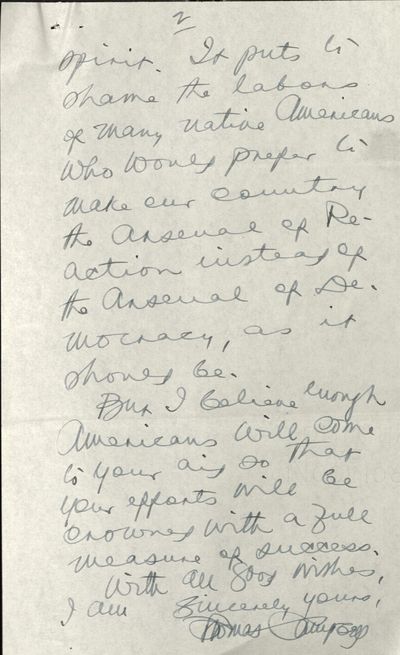 2
spirit. It puts to
shame the labors
of many native Americans
who would prefer to
make our country
the Arsenal of Re-
action instead of
the Arsenal of De-
mocracy, as it
should be.
But I believe enough
Americans will come
to your aid so that
your efforts will be
crowned with a full
measure of success.
With all good wishes,
I am Sincerely yours,
Thomas